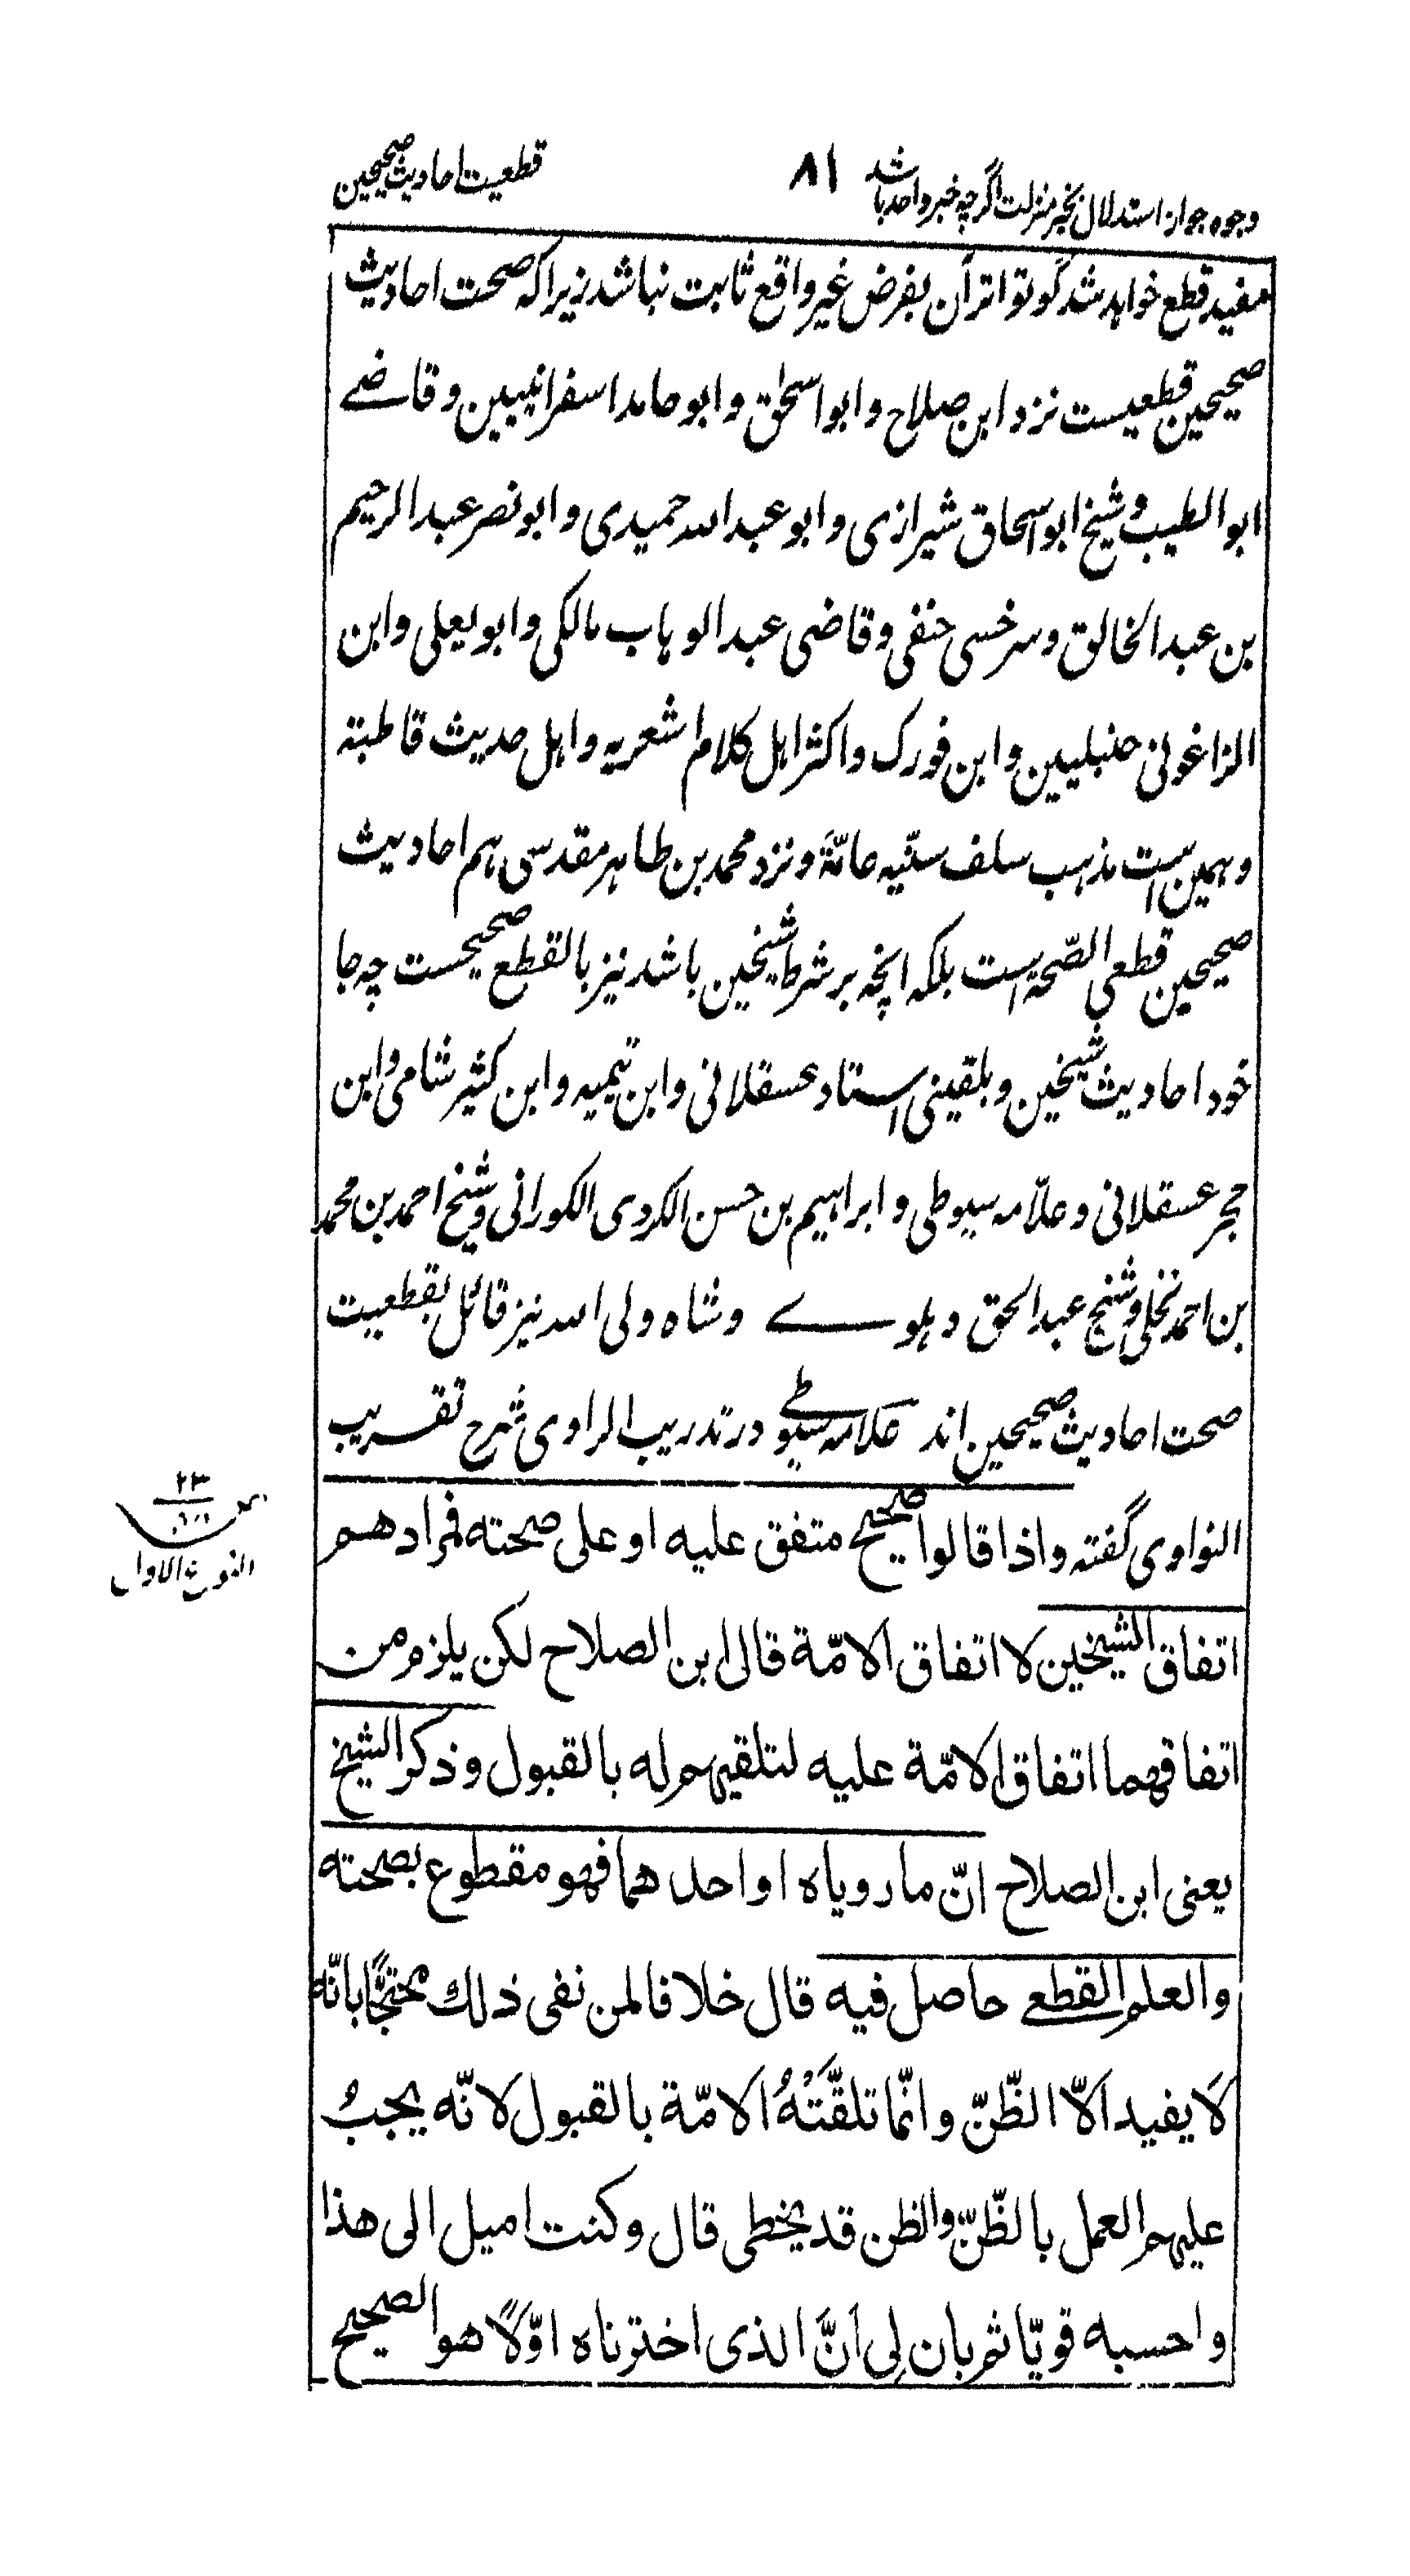 وجوه جواز استدلال بخبر منزلت اگرچه خبر واحد باشد
٨١
قطعیت احادیث صحیحین
مفید قطع خواهد شد گو تواتر آن بفرض غیر واقع ثابت نباشد زیراکه صحت احادیث
صحیحین قطعیست نزد ابن صلاح و ابو اسحٰق و ابو حامد اسفرائنیین و قاضے
ابو الطیب و شیخ ابو اسحاق شیرازی و ابو عبد الله حمیدی و ابو نصر عبد الرحیم
بن عبد الخالق و سرخسی حنفی و قاضی عبد الوهاب مالکی و ابو یعلی و ابن
الزاغونی حنبلیین و ابن فورک و اکثر اهل کلام اشعریه و اهل حدیث قاطبتہ
و همین است مذهب سلف سنّیه عامّةً و نزد محمد بن طاهر مقدسی هم احادیث
صحیحین قطعی الصّحة است بلکه انچه بر شرط شیخین باشد نیز بالقطع صحیحست چه جا
خود احادیث شیخین و بلقینی استاد عسقلانی و ابن تیمیه و ابن کثیر شامی و ابن
حجر عسقلانی و علّامه سیوطی و ابراهیم بن حسن الکردی الکورانی و شیخ احمد بن محمد
بن احمد نخلی و شیخ عبد الحق دهلوے و شاه ولی الله نیز قائل بقطعیت
صحت احادیث صحیحین اند علامه سیوطے در تدریب الراوی شرح تقریب
النواوی گفته واذا قالوا صحیح متفق علیه او علی صحته فمرادهم
اتفاق الشیخین لا اتفاق الامّة قال ابن الصلاح لکن یلزم من
اتفاقهما اتفاق الامّة علیه لتلقیهم له بالقبول و ذکر الشیخ
یعنی ابن الصلاح انّ ما رویاه او احدهما فهو مقطوع بصحته
والعلم القطعے حاصل فیه قال خلافا لمن نفی ذلك محتجًّا بانّه
لَا یفید الّا الظّنّ وانّما تلقّتْهُ الامّة بالقبول لانّه یجبُ
علیهم العمل بالظّنّ والظن قد یخطی قال و کنت امیل الی هذا
و احسبه قویّا ثم بان لِی اَنَّ الذی اخترناه اوّلًا هو الصحیح
٢٣
النوع الاول